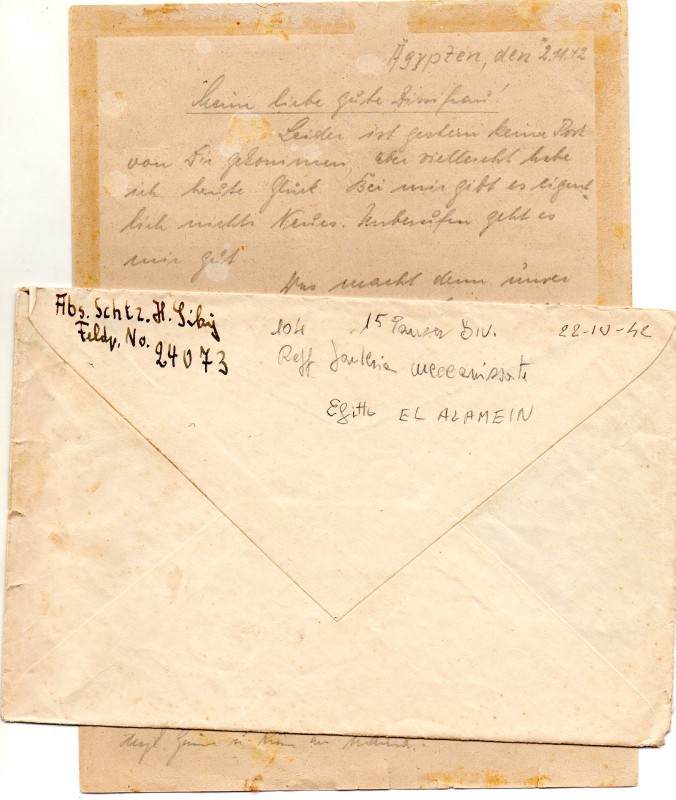 Ägypten, den 2.11.42
Meine liebe gute Sissifrau!
Leider ist gestern keine Post
von Dir gekommen, aber vielleicht habe
ich heute Glück. Bei mir gibt es eigent-
lich nichts Neues. Unberufen geht es
mir gut.
Was macht denn unser
Abs. Schtz. H.
Feldp. No. 24073
104 15 Panzer Div. 22-10-42
Regg fanteria meccanizzata
Egitto EL ALAMEIN